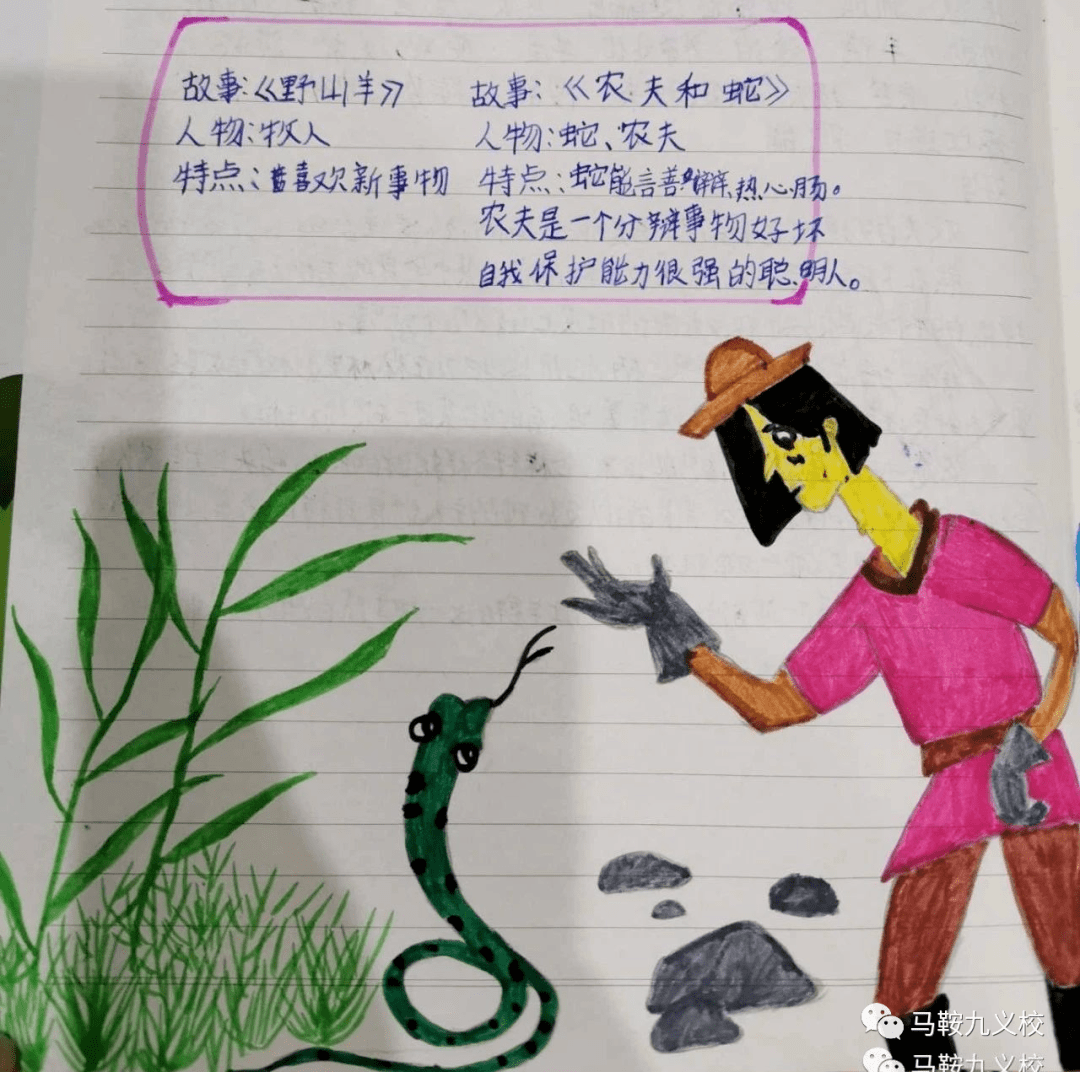 故事:《野山羊》
人物:牧人
特点:喜欢新事物
故事:《农夫和蛇》
人物:蛇、农夫
特点:蛇能言善辩、热心肠。
农夫是一个分辨事物好坏
自我保护能力很强的聪明人。
马鞍九义校
马鞍九义校